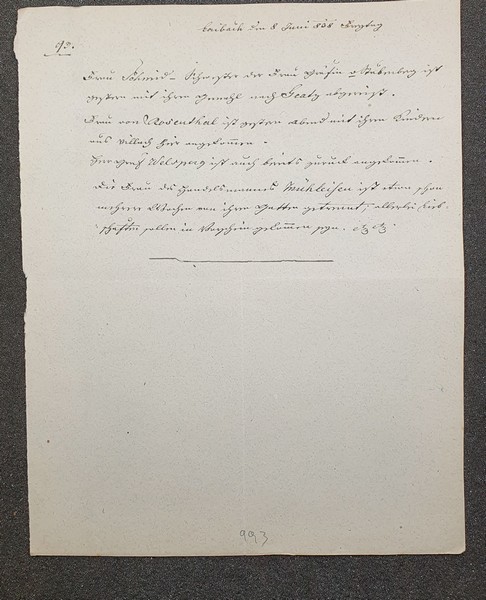 Laibach den 8 Juni 838 Freytag
93.
Frau Schmid – Schwester der Frau Gräfin Stubenberg ist
gestern mit ihrem Gemahl nach Gratz abgereist.
Frau von Rosenthal ist gestern Abend mit ihren Kindern
aus Villach hier angekommen.
Herr Graf Welsperg ist auch bereits zurück angekommen.
Die Frau des Handelsmannes Mühleisen ist schon
mehrere Wochen von ihrem Gatten getrennt; allerlei Lieb-
schaften sollen in Vorschein gekommen seyn. etz etz.
993